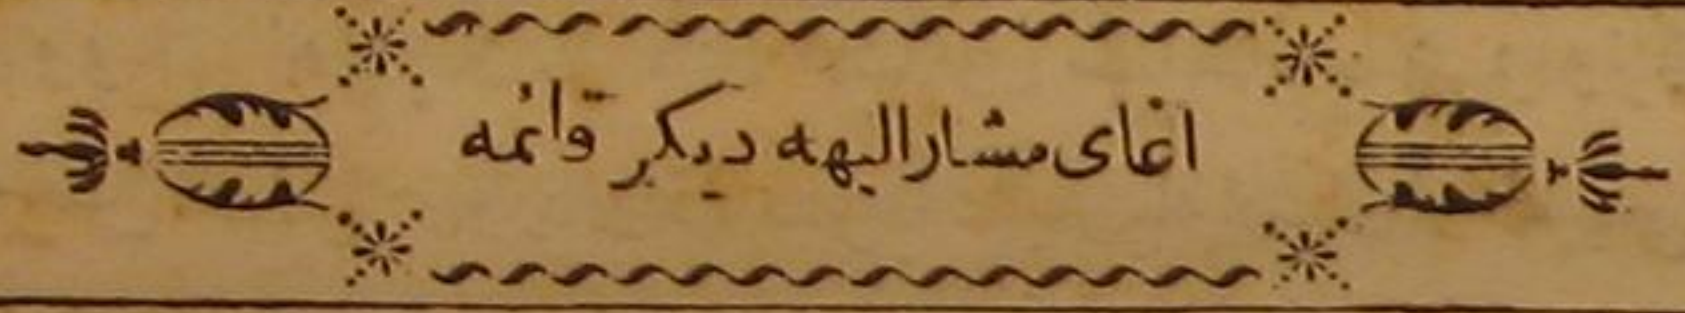 اغای مشار الیهه دیکر قائمه